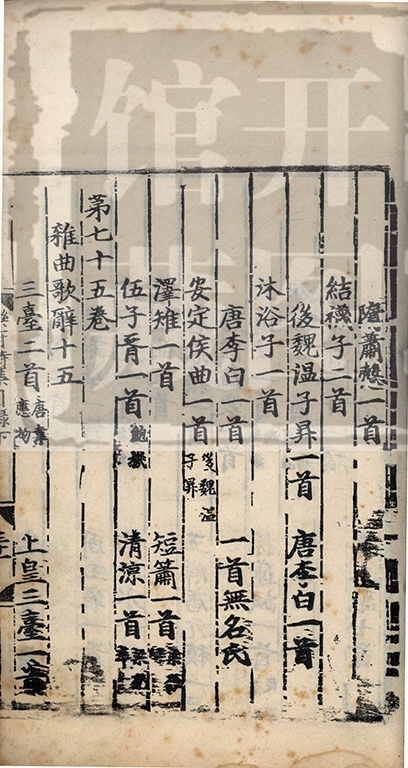 隋蕭慤一首
結襪子二首
後魏温子昇一首 唐李白一首
沐浴子一首
唐李白一首 一首無名氏
安定侯曲一首 後魏温子昇
澤雉一首 短簫一首
伍子胥一首 鮑機 清涼一首
第七十五卷
雜曲歌辭十五
三臺二首 唐韋應物 上皇三臺一首